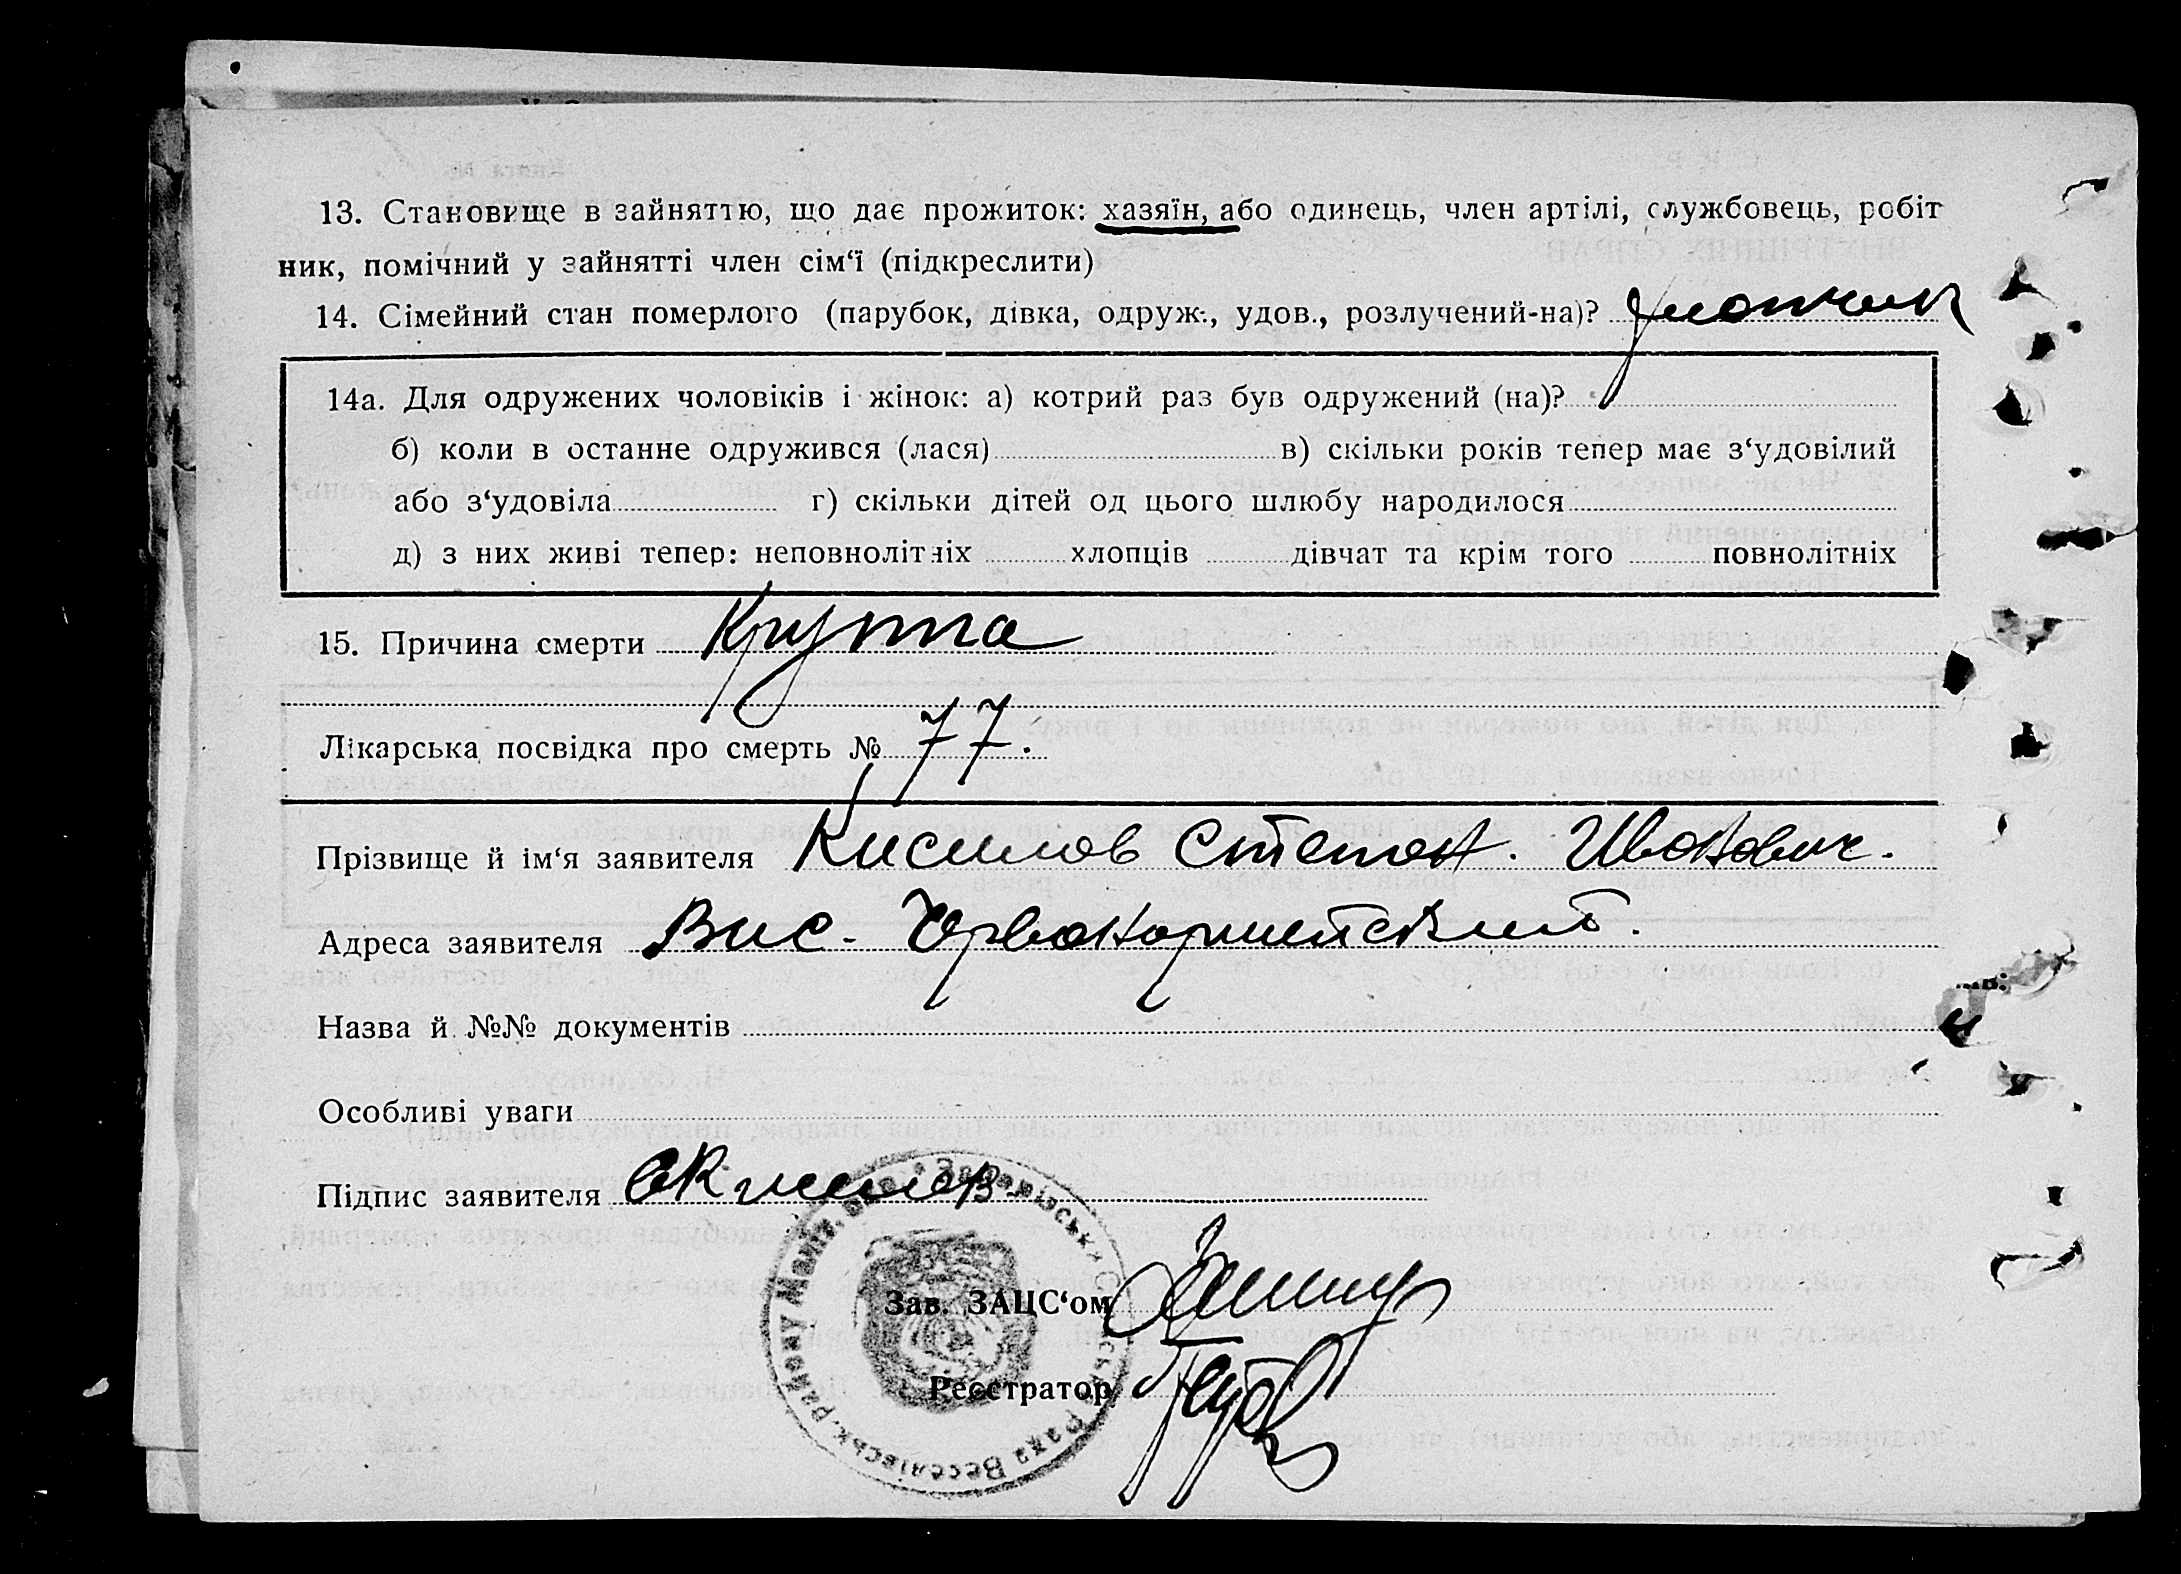 13. Становище в зайняттю, що дає прожиток: хазяїн, або одинець, член артілі, службовець, робіт
ник, помічний у зайнятті член сім‘ї (підкреслити)
14. Сімейний стан померлого (парубок, дівка, одруж., удов., розлучений-на)?
14а. Для одружених чоловіків і жінок: а) котрий раз був одружений (на)?
б) коли в останне одружився (лася) в) скільки років тепер має з‘удовілий
або з‘удовіла г) скільки дітей од цього шлюбу народилося
д) з них живі тепер: неповнолітніх хлопців дівчат та крім того повнолітніх
15. Причина смерти Круппа
Лікарська посвідка про смерть № 77.
Прізвище й ім‘я заявителя Киселов Степан. Иванович.
Адреса заявителя Вис.
Назва й №№ документів
Особливі уваги
Підпис заявителя
Зав. ЗАЦС‘ом
Реєстратор